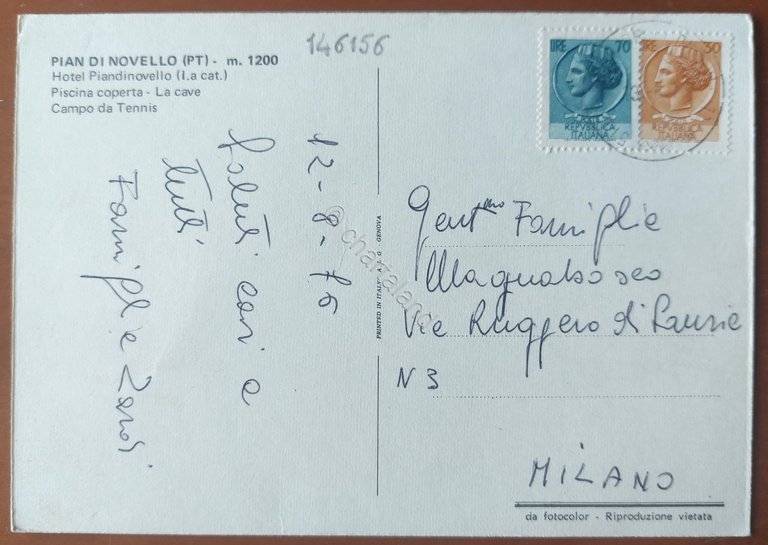 PIAN DI NOVELLO (PT) - m. 1200
Hotel Piandinovello (I.a cat.)
Piscina coperta - La cave
Campo da Tennis
146156
12-8-76
Saluti cari a
tutti
Famiglia Zanoi
PRINTED IN ITALY
GENOVA
© chartaland
LIRE 70
REPVBBLICA
ITALIANA
LIRE 30
REPVBBLICA
ITALIANA
Gent.mo Famiglia
Magnabosco
Via Ruggero di Lauria
N 3
MILANO
da fotocolor - Riproduzione vietata